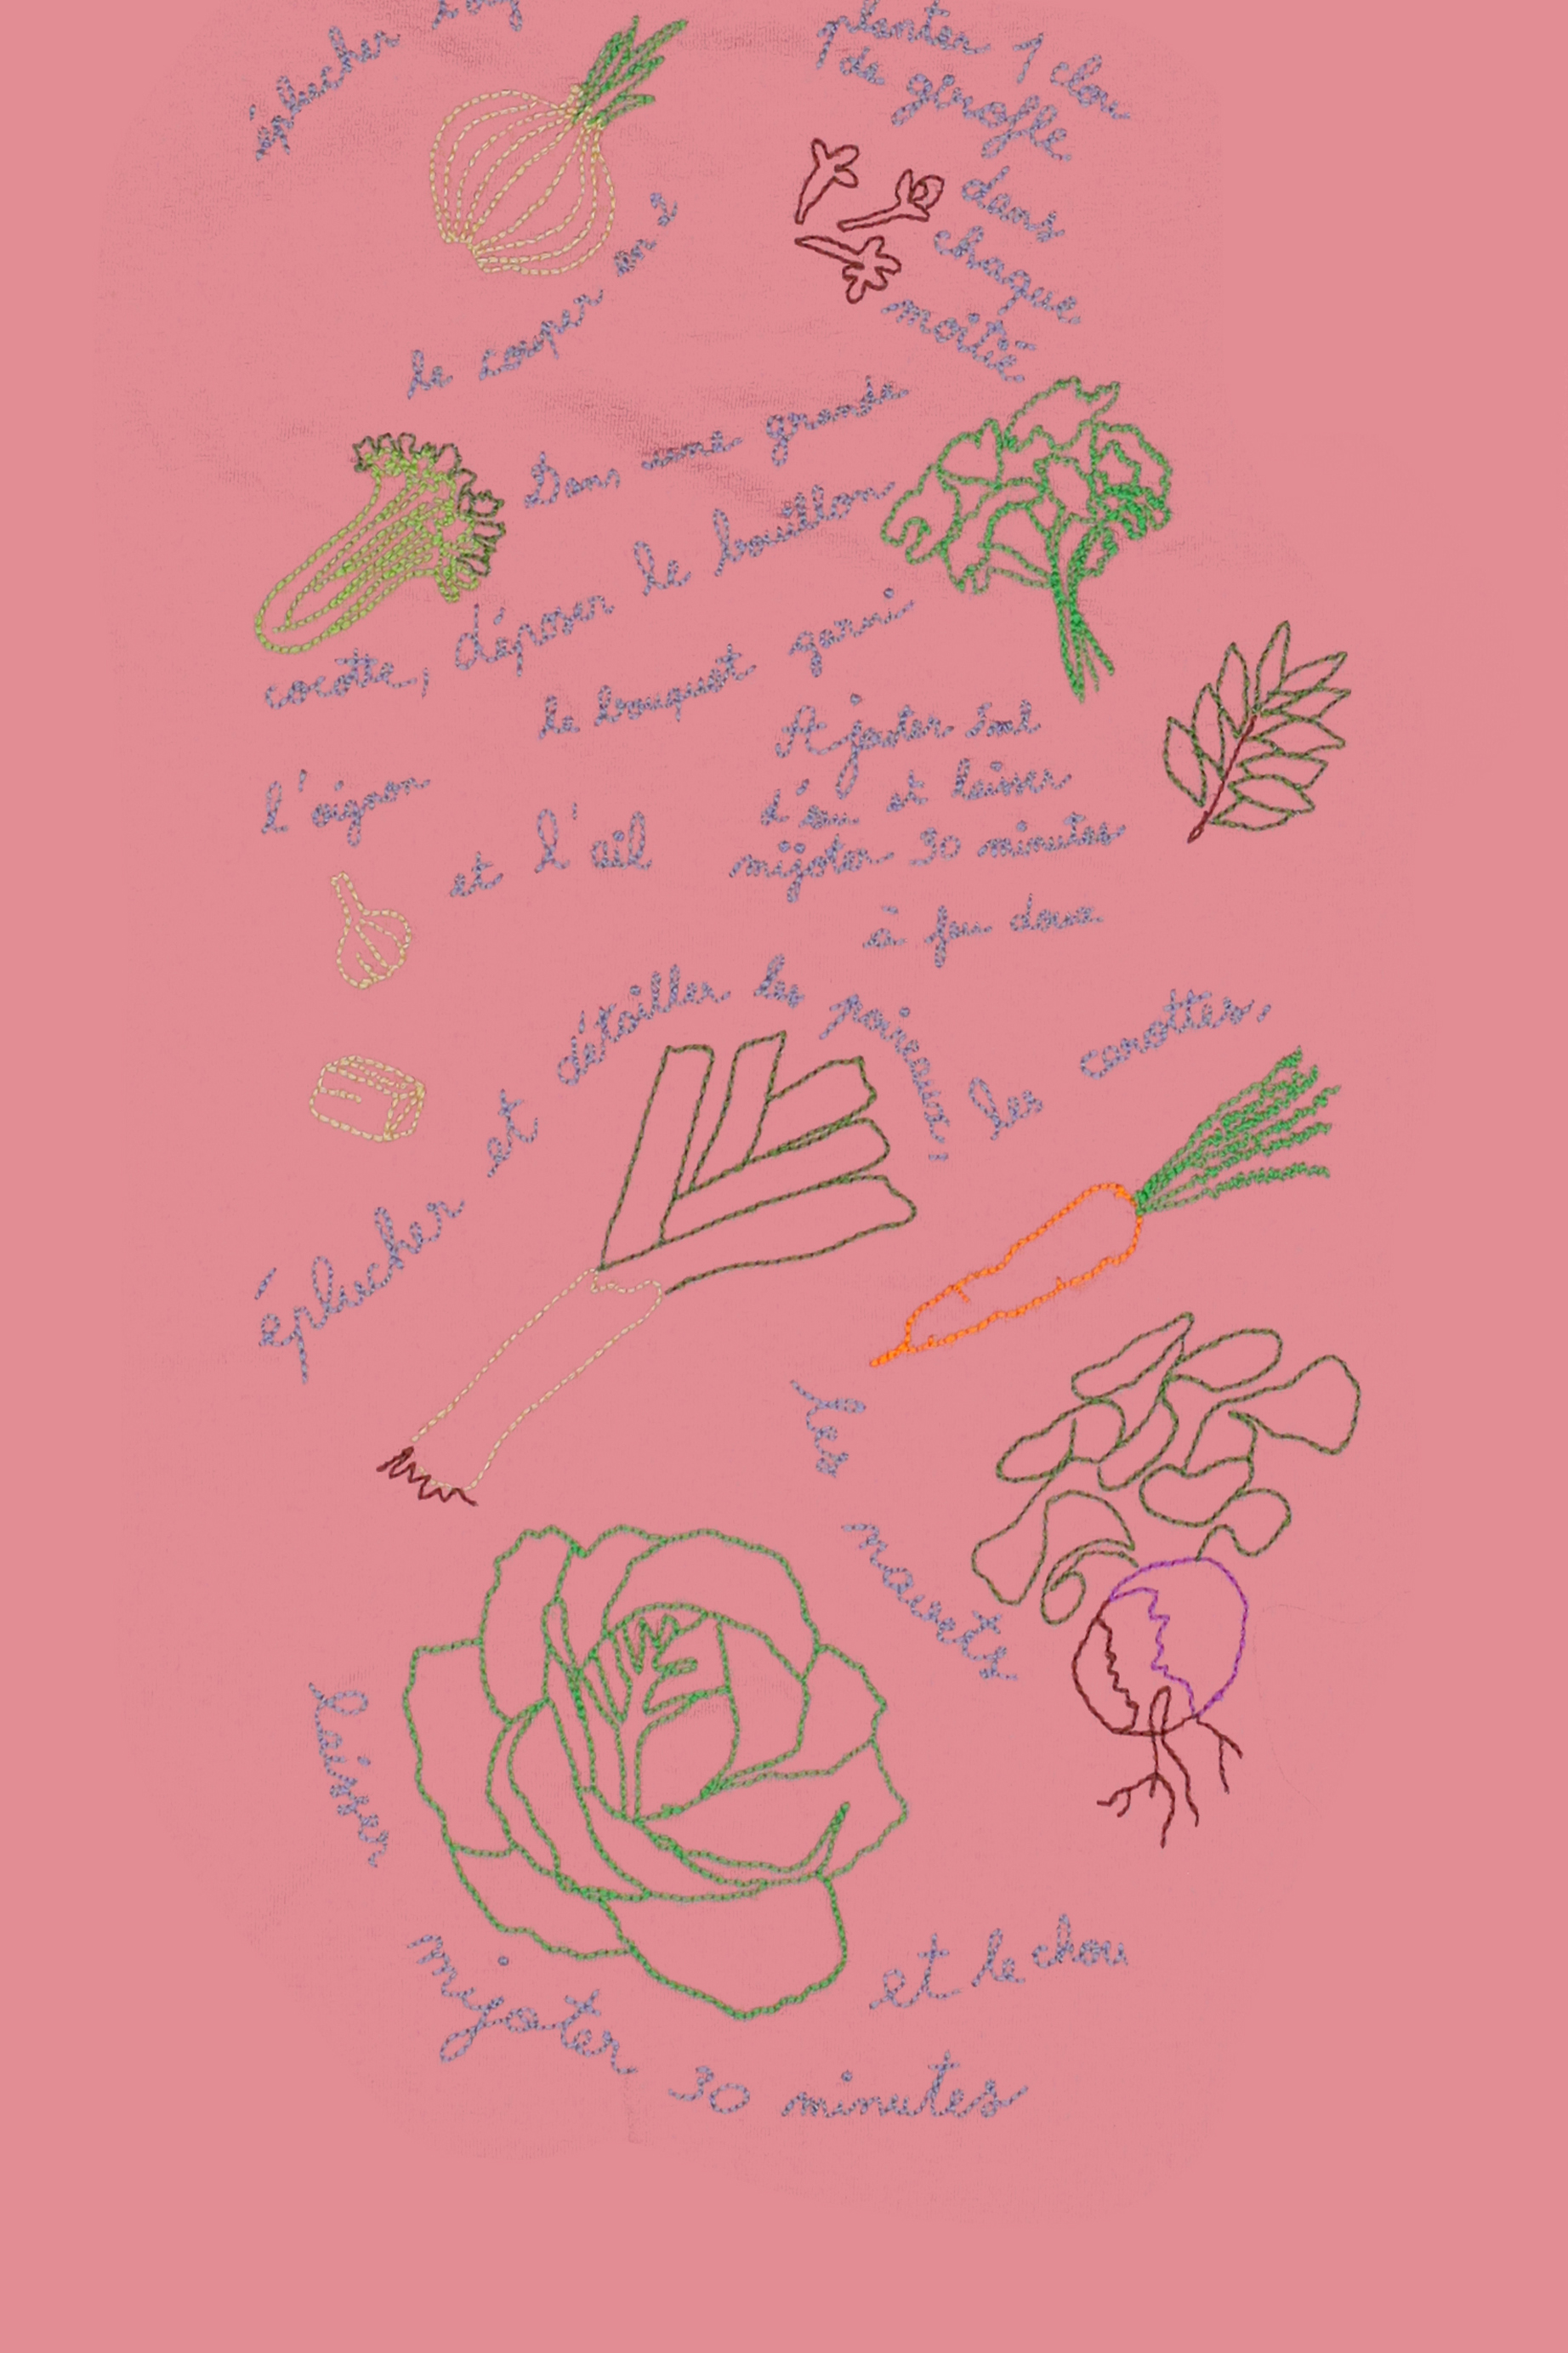 éplucher
le couper en 2
planter 1 clou
de girofle
dans
chaque
moitié
Dans une grande
cocotte, déposer le bouillon
le bouquet garni
l'oignon
et l'ail
Ajouter 5ml
d'eau et laisser
mijoter 30 minutes
à feu doux
éplucher et détailler les poireaux, les carottes,
les navets
et le chou
laisser mijoter 30 minutes